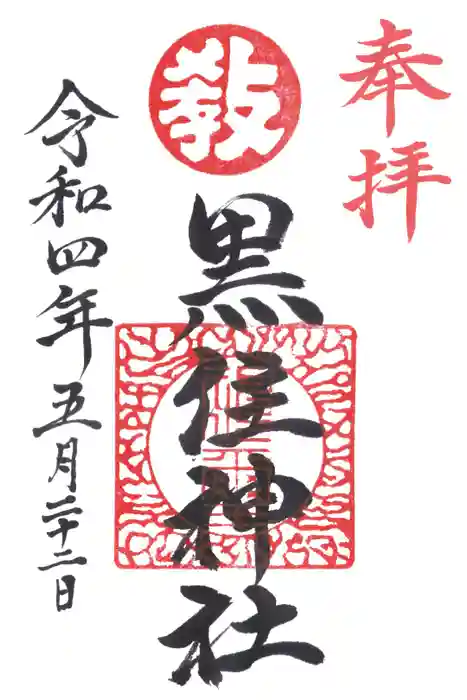 奉拝
教
黒住神社
令和四年五月二十二日